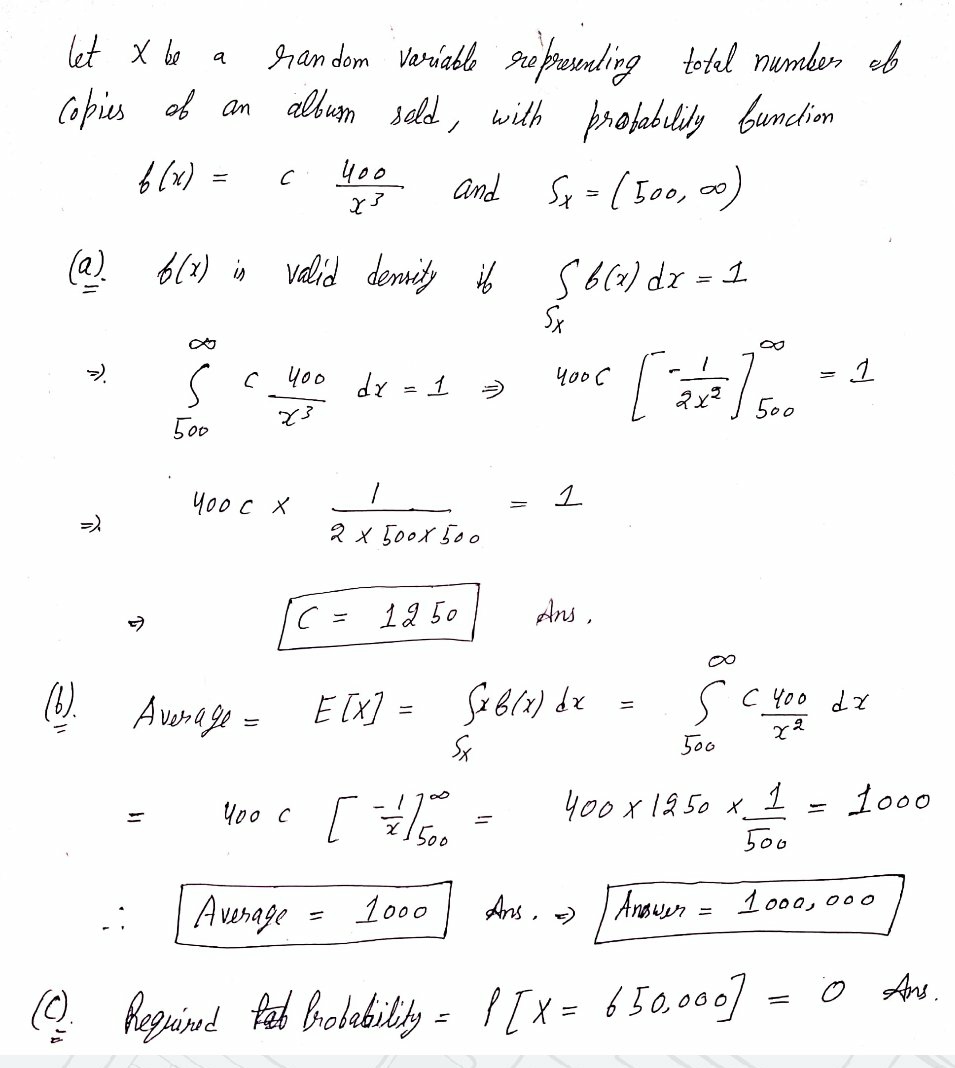 let X be a random variable representing total number of
Copies of an album sold, with probability function
f(x) = c 400/x³ and Sx = (500, ∞)
(a). f(x) is valid density if ∫Sx f(x) dx = 1
⇒. ∫500^∞ c 400/x³ dx = 1 ⇒ 400c [-1/2x²]500^∞ = 1
⇒. 400c × 1/(2 × 500 × 500) = 1
⇒ C = 1250 Ans.
(b). Average = E[X] = ∫Sx x f(x) dx = ∫500^∞ c 400/x² dx
= 400 c [-1/x]500^∞ = 400 × 1250 × 1/500 = 1000
∴ Average = 1000 Ans. ⇒ Answer = 1000,000
(C). Required Probability = P[X = 650,000] = 0 Ans.